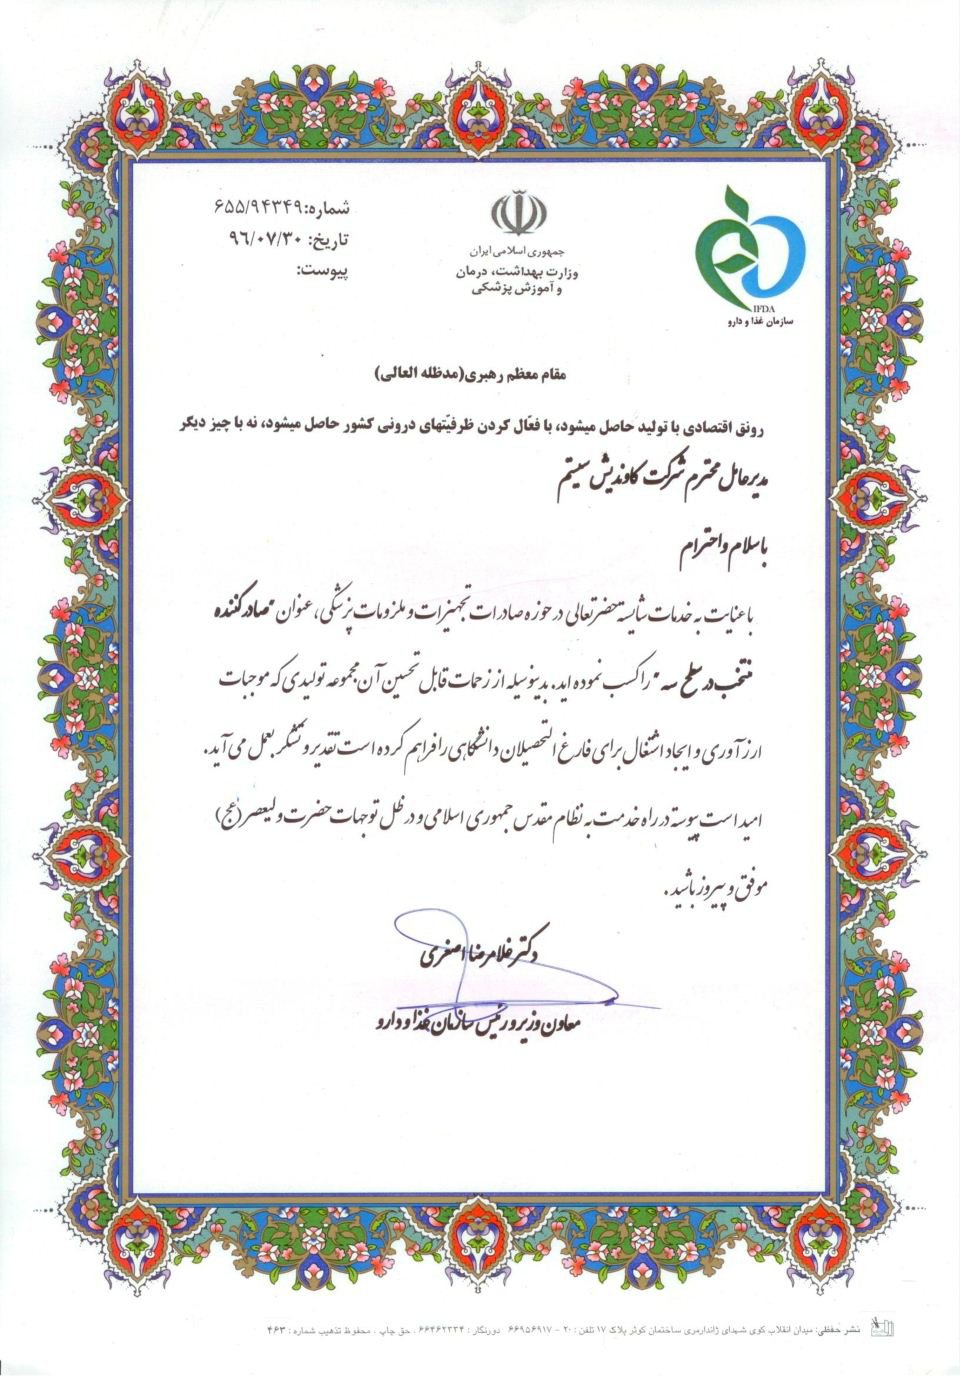 شماره:۶۵۵/۹۴۳۴۹
تاریخ: ۹۶/۰۷/۳۰
پیوست:
جمهوری اسلامی ایران
وزارت بهداشت، درمان
و آموزش پزشکی
IFDA
سازمان غذا و دارو
مقام معظم رهبری(مدظله العالی)
رونق اقتصادی با تولید حاصل میشود، با فعّال کردن ظرفیّتهای درونی کشور حاصل میشود، نه با چیز دیگر
مدیرعامل محترم شرکت کاوندیش سیستم
باسلام و احترام
با عنایت به خدمات شایسته حضرتعالی در حوزه صادرات تجهیزات و ملزومات پزشکی، عنوان "صادرکننده
منتخب در سطح سه" را کسب نموده اید. بدینوسیله از زحمات قابل تحسین آن مجموعه تولیدی که موجبات
ارزآوری و ایجاد اشتغال برای فارغ التحصیلان دانشگاهی را فراهم کرده است تقدیر و تشکر بعمل می آید.
امید است پیوسته در راه خدمت به نظام مقدس جمهوری اسلامی و در ظل توجهات حضرت ولیعصر (عج)
موفق و پیروز باشید.
دکتر غلامرضا اصغری
معاون وزیر و رئیس سازمان غذا و دارو
نشر حفظی: میدان انقلاب کوی شهدای ژاندارمری ساختمان کوثر پلاک ۱۷ تلفن: ۲۰ - ۶۶۹۵۶۹۱۷ دورنگار: ۶۶۴۶۲۳۳۴ . حق چاپ . محفوظ تذهیب شماره: ۴۶۳